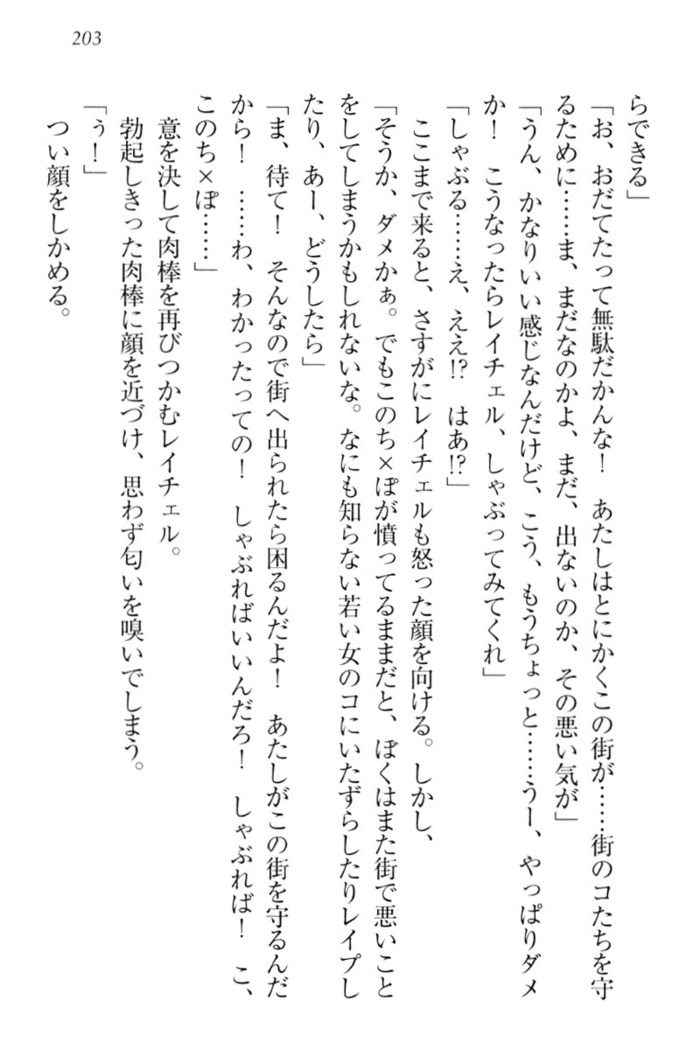 203
らできる」
「お、おだてたって無駄だかんな！　あたしはとにかくこの街が……街のコたちを守
るために……ま、まだなのかよ、まだ、出ないのか、その悪い気が」
「うん、かなりいい感じなんだけど、こう、もうちょっと……うー、やっぱりダメ
か！　こうなったらレイチェル、しゃぶってみてくれ」
「しゃぶる……え、ええ!?　はあ!?」
　ここまで来ると、さすがにレイチェルも怒った顔を向ける。しかし、
「そうか、ダメかぁ。でもこのち×ぽが憤ってるままだと、ぼくはまた街で悪いこと
をしてしまうかもしれないな。なにも知らない若い女のコにいたずらしたりレイプし
たり、あー、どうしたら」
「ま、待て！　そんなので街へ出られたら困るんだよ！　あたしがこの街を守るんだ
から！　……わ、わかったっての！　しゃぶればいいんだろ！　しゃぶれば！　こ、
このち×ぽ……」
　意を決して肉棒を再びつかむレイチェル。
　勃起しきった肉棒に顔を近づけ、思わず匂いを嗅いでしまう。
「ぅ！」
　つい顔をしかめる。